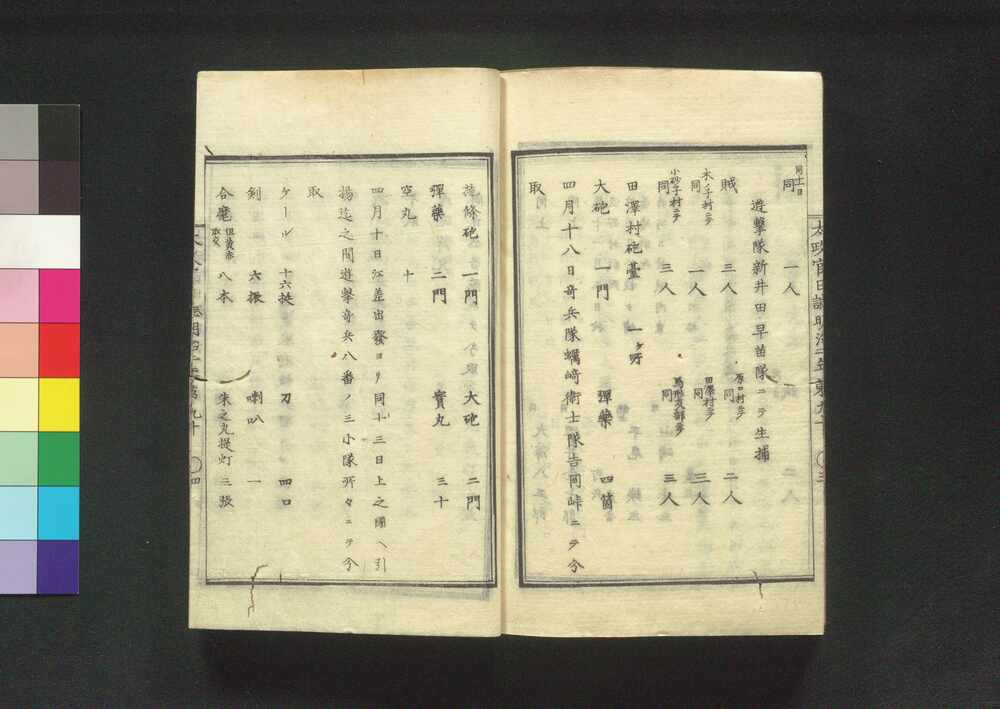 同十一日
同 一人
遊擊隊新井田早苗隊ニテ生捕
賊 三人 原口村ニテ 同 二人
木ノ子村ニテ 同 一人 田澤村ニテ 同 三人
小砂子村ニテ 同 三人 同 三人
田澤村砲臺 一ケ所
大砲 一門 彈藥 四箇
四月十八日奇兵隊蠣崎衛士隊吉岡峠ニテ分
取
太政官日誌明治二年
三
條砲 一門 大砲 二門
彈藥 二門 實丸 三十
空丸 十
四月十日江差出發ヨリ同十三日上之國ヘ引
揚迄之間遊擊奇兵八番ノ三小隊所々ニテ分
取
ケール 十六挺 刀 四口
劍 六振 喇叭 一
合麾 但黃赤取交 八本 朱之丸提灯 三張
第九十
四